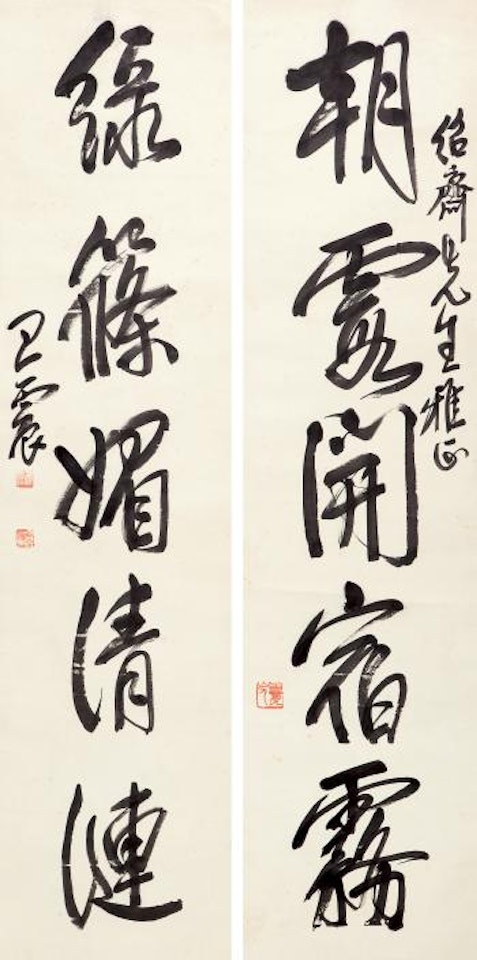 紹齋先生雅正
朝霞開宿霧
綠篠媚清漣
王震